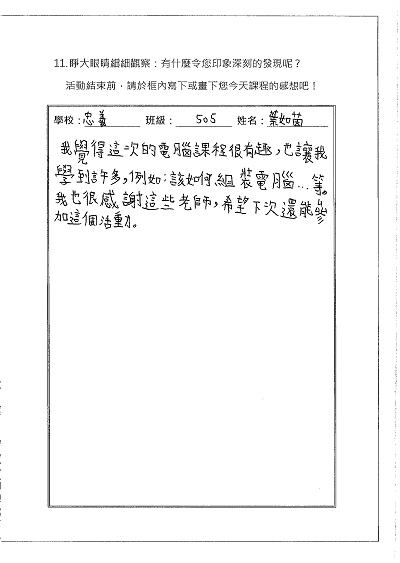 11.睜大眼睛細細觀察：有什麼令您印象深刻的發現呢？
活動結束前，請於框內寫下或畫下您今天課程的感想吧！
學校：忠義 班級：505 姓名：葉如茵
我覺得這次的電腦課程很有趣，也讓我
學到許多，例如：該如何組裝電腦…等。
我也很感謝這些老師，希望下次還能參
加這個活動。